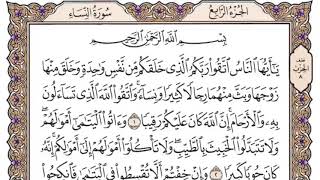 الجزء الرابع
سورة النساء
بِسْمِ ٱللَّهِ ٱلرَّحْمَٰنِ ٱلرَّحِيمِ
يَٰٓأَيُّهَا ٱلنَّاسُ ٱتَّقُوا۟ رَبَّكُمُ ٱلَّذِى خَلَقَكُم مِّن نَّفْسٍ وَٰحِدَةٍ وَخَلَقَ مِنْهَا
زَوْجَهَا وَبَثَّ مِنْهُمَا رِجَالًا كَثِيرًا وَنِسَآءً وَٱتَّقُوا۟ ٱللَّهَ ٱلَّذِى تَسَآءَلُونَ
بِهِۦ وَٱلْأَرْحَامَ إِنَّ ٱللَّهَ كَانَ عَلَيْكُمْ رَقِيبًا ١ وَءَاتُوا۟ ٱلْيَتَٰمَىٰٓ أَمْوَٰلَهُمْ
وَلَا تَتَبَدَّلُوا۟ ٱلْخَبِيثَ بِٱلطَّيِّبِ وَلَا تَأْكُلُوٓا۟ أَمْوَٰلَهُمْ إِلَىٰٓ أَمْوَٰلِكُمْ إِنَّهُۥ
كَانَ حُوبًا كَبِيرًا ٢ وَإِنْ خِفْتُمْ أَلَّا تُقْسِطُوا۟ فِى ٱلْيَتَٰمَىٰ فَٱنكِحُوا۟